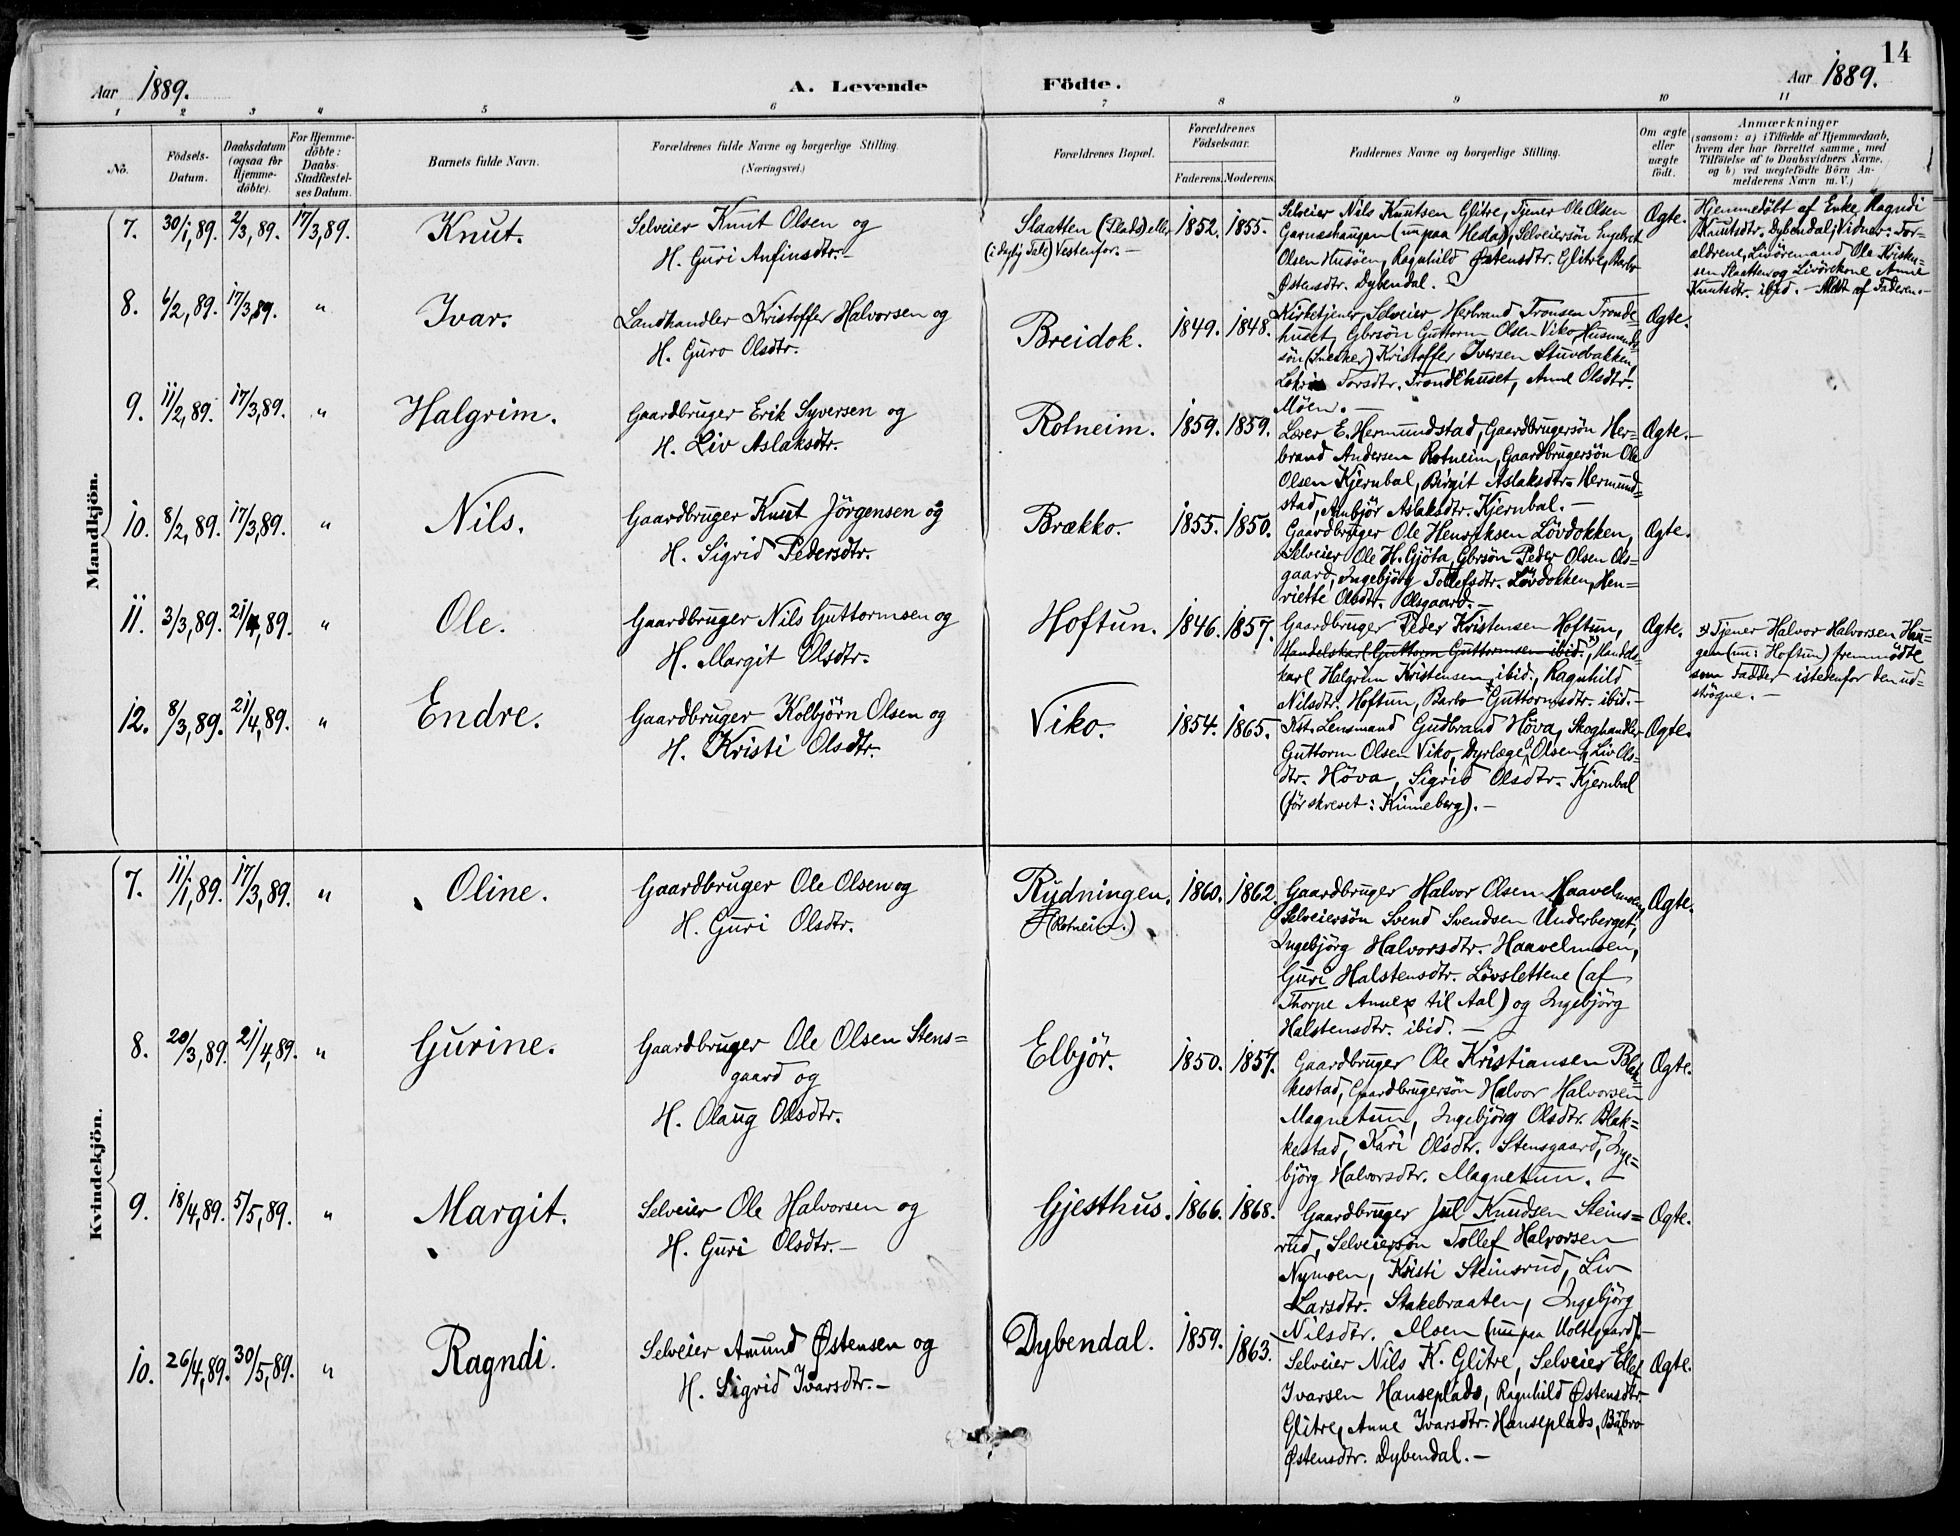 14
Aar 1889.
A. Levende
Födte.
Aar 1889.
1 2 3 4 5 6 7 8 9 10 11
No.
Födsels-
Datum.
Daabsdatum
(ogsaa for
Hjemme-
döbte).
For Hjemme-
döbte:
Daabs-
Stadfæstel-
ses Datum.
Barnets fulde Navn.
Forældrenes fulde Navne og borgerlige Stilling.
(Næringsvei.)
Forældrenes Bopæl.
Forældrenes
Födselsaar.
Faderens. Moderens.
Faddernes Navne og borgerlige Stilling.
Om ægte
eller
uægte
födt.
Anmærkninger
(saasom: a) i Tilfælde af Hjemmedaab,
hvem der har forrettet samme, med
Tilföielse af to Daabsvidners Navne,
og b) ved uægtefödte Börn An-
melderens Navn m. V.)
Mandkjön.
7. 30/1, 89. 2/3, 89. 17/3, 89.
Knut.
Selveier Knut Olsen og
H. Guri Anfinsdtr.-
Slaatten (Plads) eller
(i daglig Tale) Vestenfor. -
1852. 1855.
Selveier Nils Knutsen Glitre, Tjener Ole Olsen
Garnæshaugen (nu paa Hestad), Selveiersön Engebret
Olsen Husöen, Ragnhild Østensdtr. Glitre, Barbo
Østensdtr. Dybendal.
Ogte.
Hjemmedöbt af Enke Ragndi
Knutsdtr. Dybendal; Vidner: For-
ældrene, Livöremand Ole Kristen-
sen Slaatten og Livörekone Anne
Knutsdtr. ibid. - Meldt af Faderen. -
8. 6/2, 89. 17/3, 89. "
Ivar.
Landhandler Kristoffer Halvorsen og
H. Guro Olsdtr.
Breidok.
1849. 1848.
Kirketjener, Selveier Herbrand Tronsen Tronde-
huset, Gbrsön Guttorm Olsen Viko, Husmands-
sön (Snekker) Kristoffer Iversen Stuvebakken,
Torsdtr. Trondehuset, Anne Olsdtr.
Moen. -
Ogte.
9. 11/2, 89. 17/3, 89. "
Halgrim.
Gaardbruger Erik Syversen og
H. Liv Aslaksdtr.
Rotneim.
1859. 1859.
Lærer E. Hermundstad, Gaardbrugersön Her-
brand Andersen Rotneim, Gaardbrugersön Ole
Olsen Kjernbal, Birgit Aslaksdtr. Hermund-
stad, Anbjör Aslaksdtr. Kjernbal. -
Ogte. -
10. 8/2, 89. 17/3, 89. "
Nils.
Gaardbruger Knut Jörgensen og
H. Sigrid Pedersdtr.
Brækko.
1855. 1850.
Gaardbruger Ole Henriksen Lövdokken,
Selveier Ole H. Gjöta, Gbrsön Peder Olsen Ols-
gaard, Ingebjörg Tollefsdtr. Lövdokken, Hen-
riette Olsdtr. Olsgaard. -
Ogte.
11. 3/3, 89. 21/4, 89. "
Ole.
Gaardbruger Nils Guttormsen og
H. Margit Olsdtr.
Hoftun.
1846. 1857.
Gaardbruger Peder Kristensen Hoftun,
Handelskarl Guttorm Guttormsen ibid., x) Handels-
karl Halgrim Kristensen ibid., Ragnhild
Nilsdtr. Hoftun, Barbo Guttormsdtr. ibid. -
Ogte.
x) Tjener Halvor Halvorsen Hau-
gen (nu: Hoftun) fremmödte
som Fadder istedenfor den ud-
strögne. -
12. 8/3, 89. 21/4, 89. "
Endre.
Gaardbruger Kolbjörn Olsen og
H. Kristi Olsdtr.
Viko.
1854. 1865.
Kst. Lensmand Gudbrand Höva, Skoghandler
Guttorm Olsen Viko, Dyrlæge Olsen, Liv Ols-
dtr. Höva, Sigrid Olsdtr. Kjernbal
(för skrevet: Kinneberg). -
Ogte.
Kvindekjön.
7. 11/1, 89. 17/3, 89. "
Oline.
Gaardbruger Ole Olsen og
H. Guri Olsdtr.
Rudningen.
(Rotneim.)
1860. 1862.
Gaardbruger Halvor Olsen Haavelmoen,
Selveiersön Svend Svendsen Underberget,
Ingebjörg Halvorsdtr. Haavelmoen,
Guri Halstensdtr. Lövslettene (af
Thorpe Annex til Aal) og Ingebjörg
Halstensdtr. ibid. -
Ogte.
8. 20/3, 89. 21/4, 89. "
Gurine.
Gaardbruger Ole Olsen Stens=
gaard og
H. Olaug Olsdtr.
Elbjör.
1850. 1857.
Gaardbruger Ole Kristiansen Blak-
kestad, Gaardbrugersön Halvor Halvorsen
Magnetun, Ingebjörg Olsdtr. Blak=
kestad, Kari Olsdtr. Stensgaard, Inge=
björg Halvorsdtr. Magnetun. -
Ogte.
9. 18/4, 89. 5/5, 89. "
Margit.
Selveier Ole Halvorsen og
H. Guri Olsdtr. -
Gjesthus.
1866. 1868.
Gaardbruger Jul Knudsen Steins=
rud, Selveiersön Tollef Halvorsen
Nymoen, Kristi Steinsrud, Liv
Larsdtr. Stakebraaten, Ingebjörg
Nilsdtr. Moen (nu paa Noltegaard). -
Ogte.
10. 26/4, 89. 30/5, 89. "
Ragndi.
Selveier Amund Østensen og
H. Sigrid Ivarsdtr. -
Dybendal.
1859. 1863.
Selveier Nils K. Glitre, Selveier Ellef
Ivarsen Hanseplads, Ragnhild Østensdtr.
Glitre, Anne Ivarsdtr. Hanseplads, Barbro
Østensdtr. Dybendal. -
Ogte.